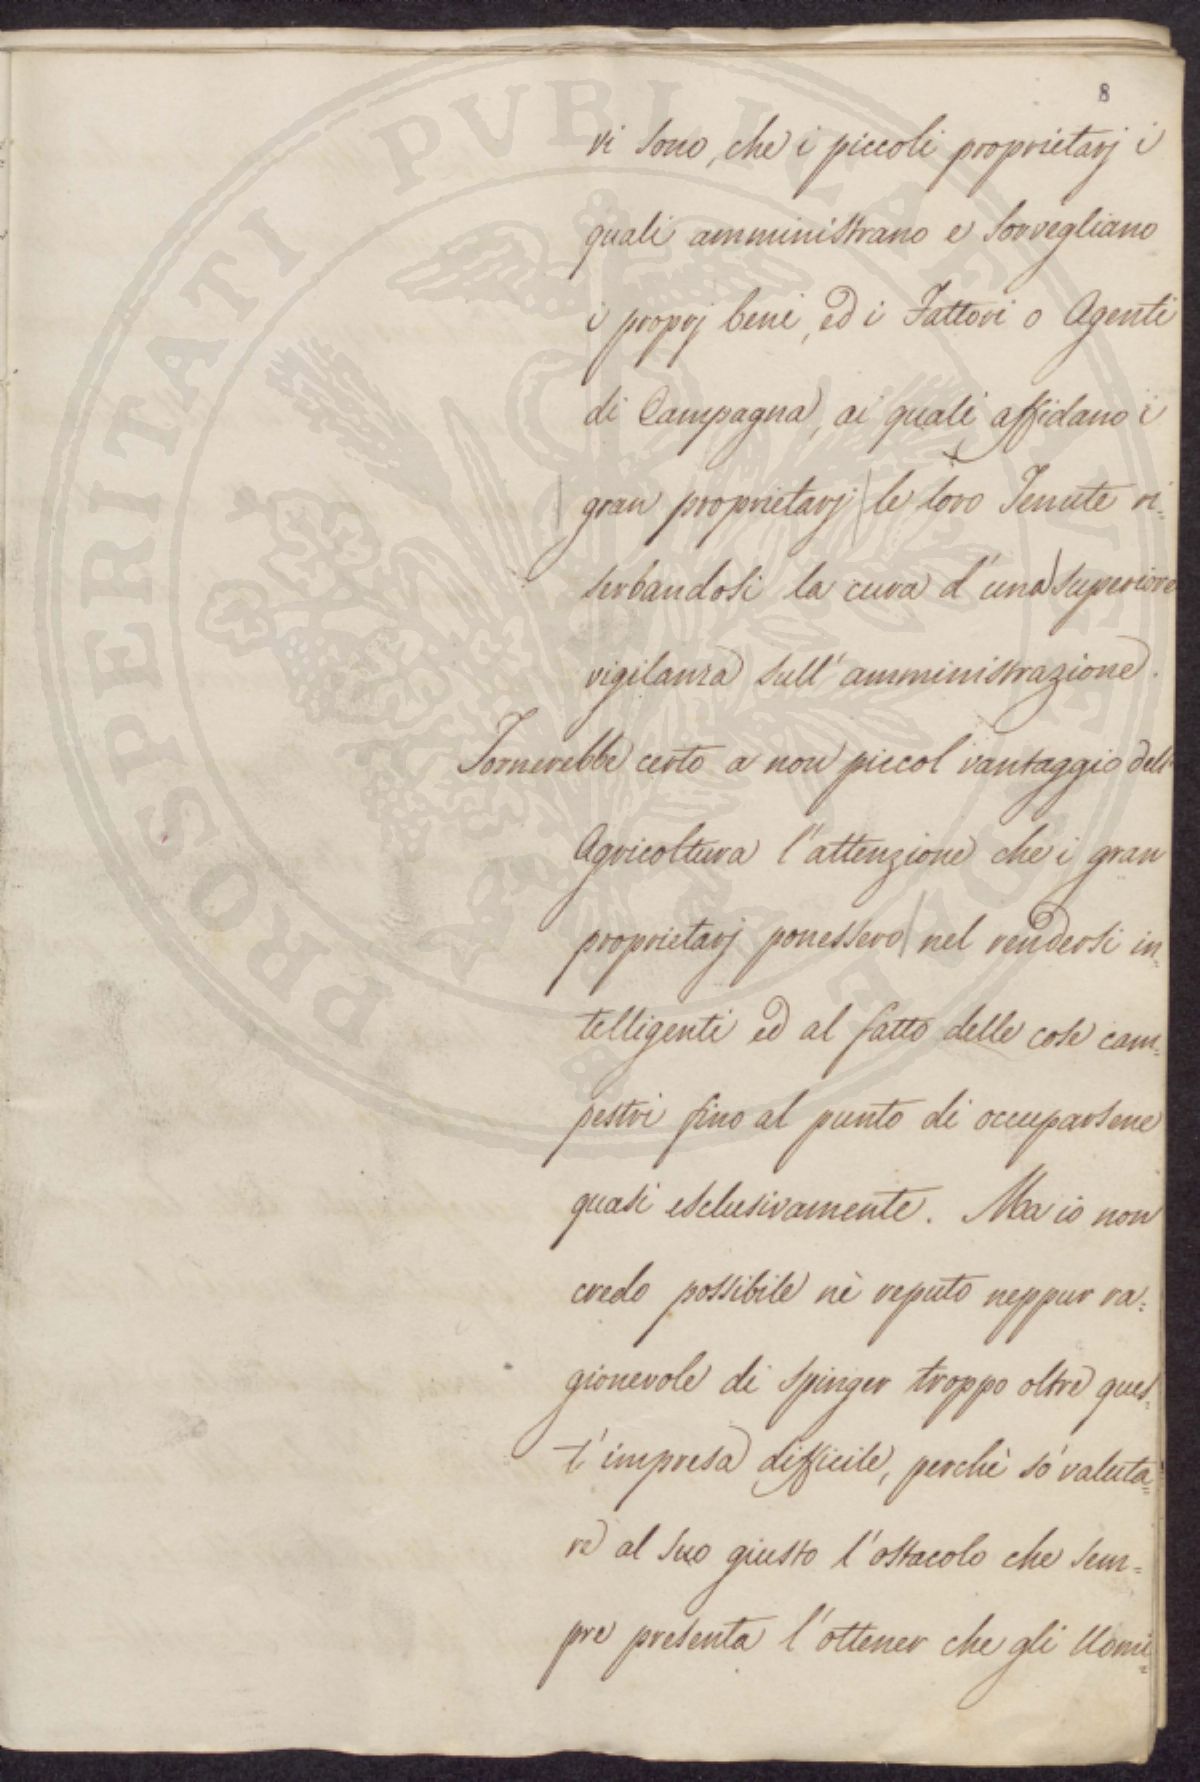 8
vi sono, che i piccoli proprietarj i
quali amministrano e sorvegliano
i proprj beni, ed i Fattori o Agenti
di Campagna, ai quali affidano i
gran proprietarj le loro Tenute ri=
serbandosi la cura d'una superiore
vigilanza sull'amministrazione.
Tornerebbe certo a non piccol vantaggio dell'
Agricoltura l'attenzione che i gran
proprietarj ponessero nel rendersi in=
telligenti ed al fatto delle cose cam=
pestri fino al punto di occuparsene
quasi esclusivamente. Ma io non
credo possibile nè reputo neppur ra=
gionevole di spinger troppo oltre ques=
t'impresa difficile, perchè sò valuta=
re al suo giusto l'ostacolo che sem=
pre presenta l'ottener che gli Uomi=
PROSPERITATI PUBLICAE AUGENDAE